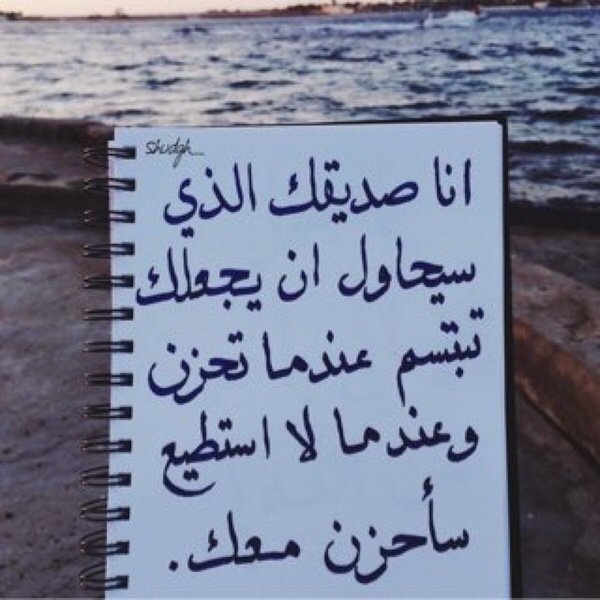 Shudgh
انا صديقك الذي
سيحاول ان يجعلك
تبتسم عندما تحزن
وعندما لا استطيع
سأحزن معك.